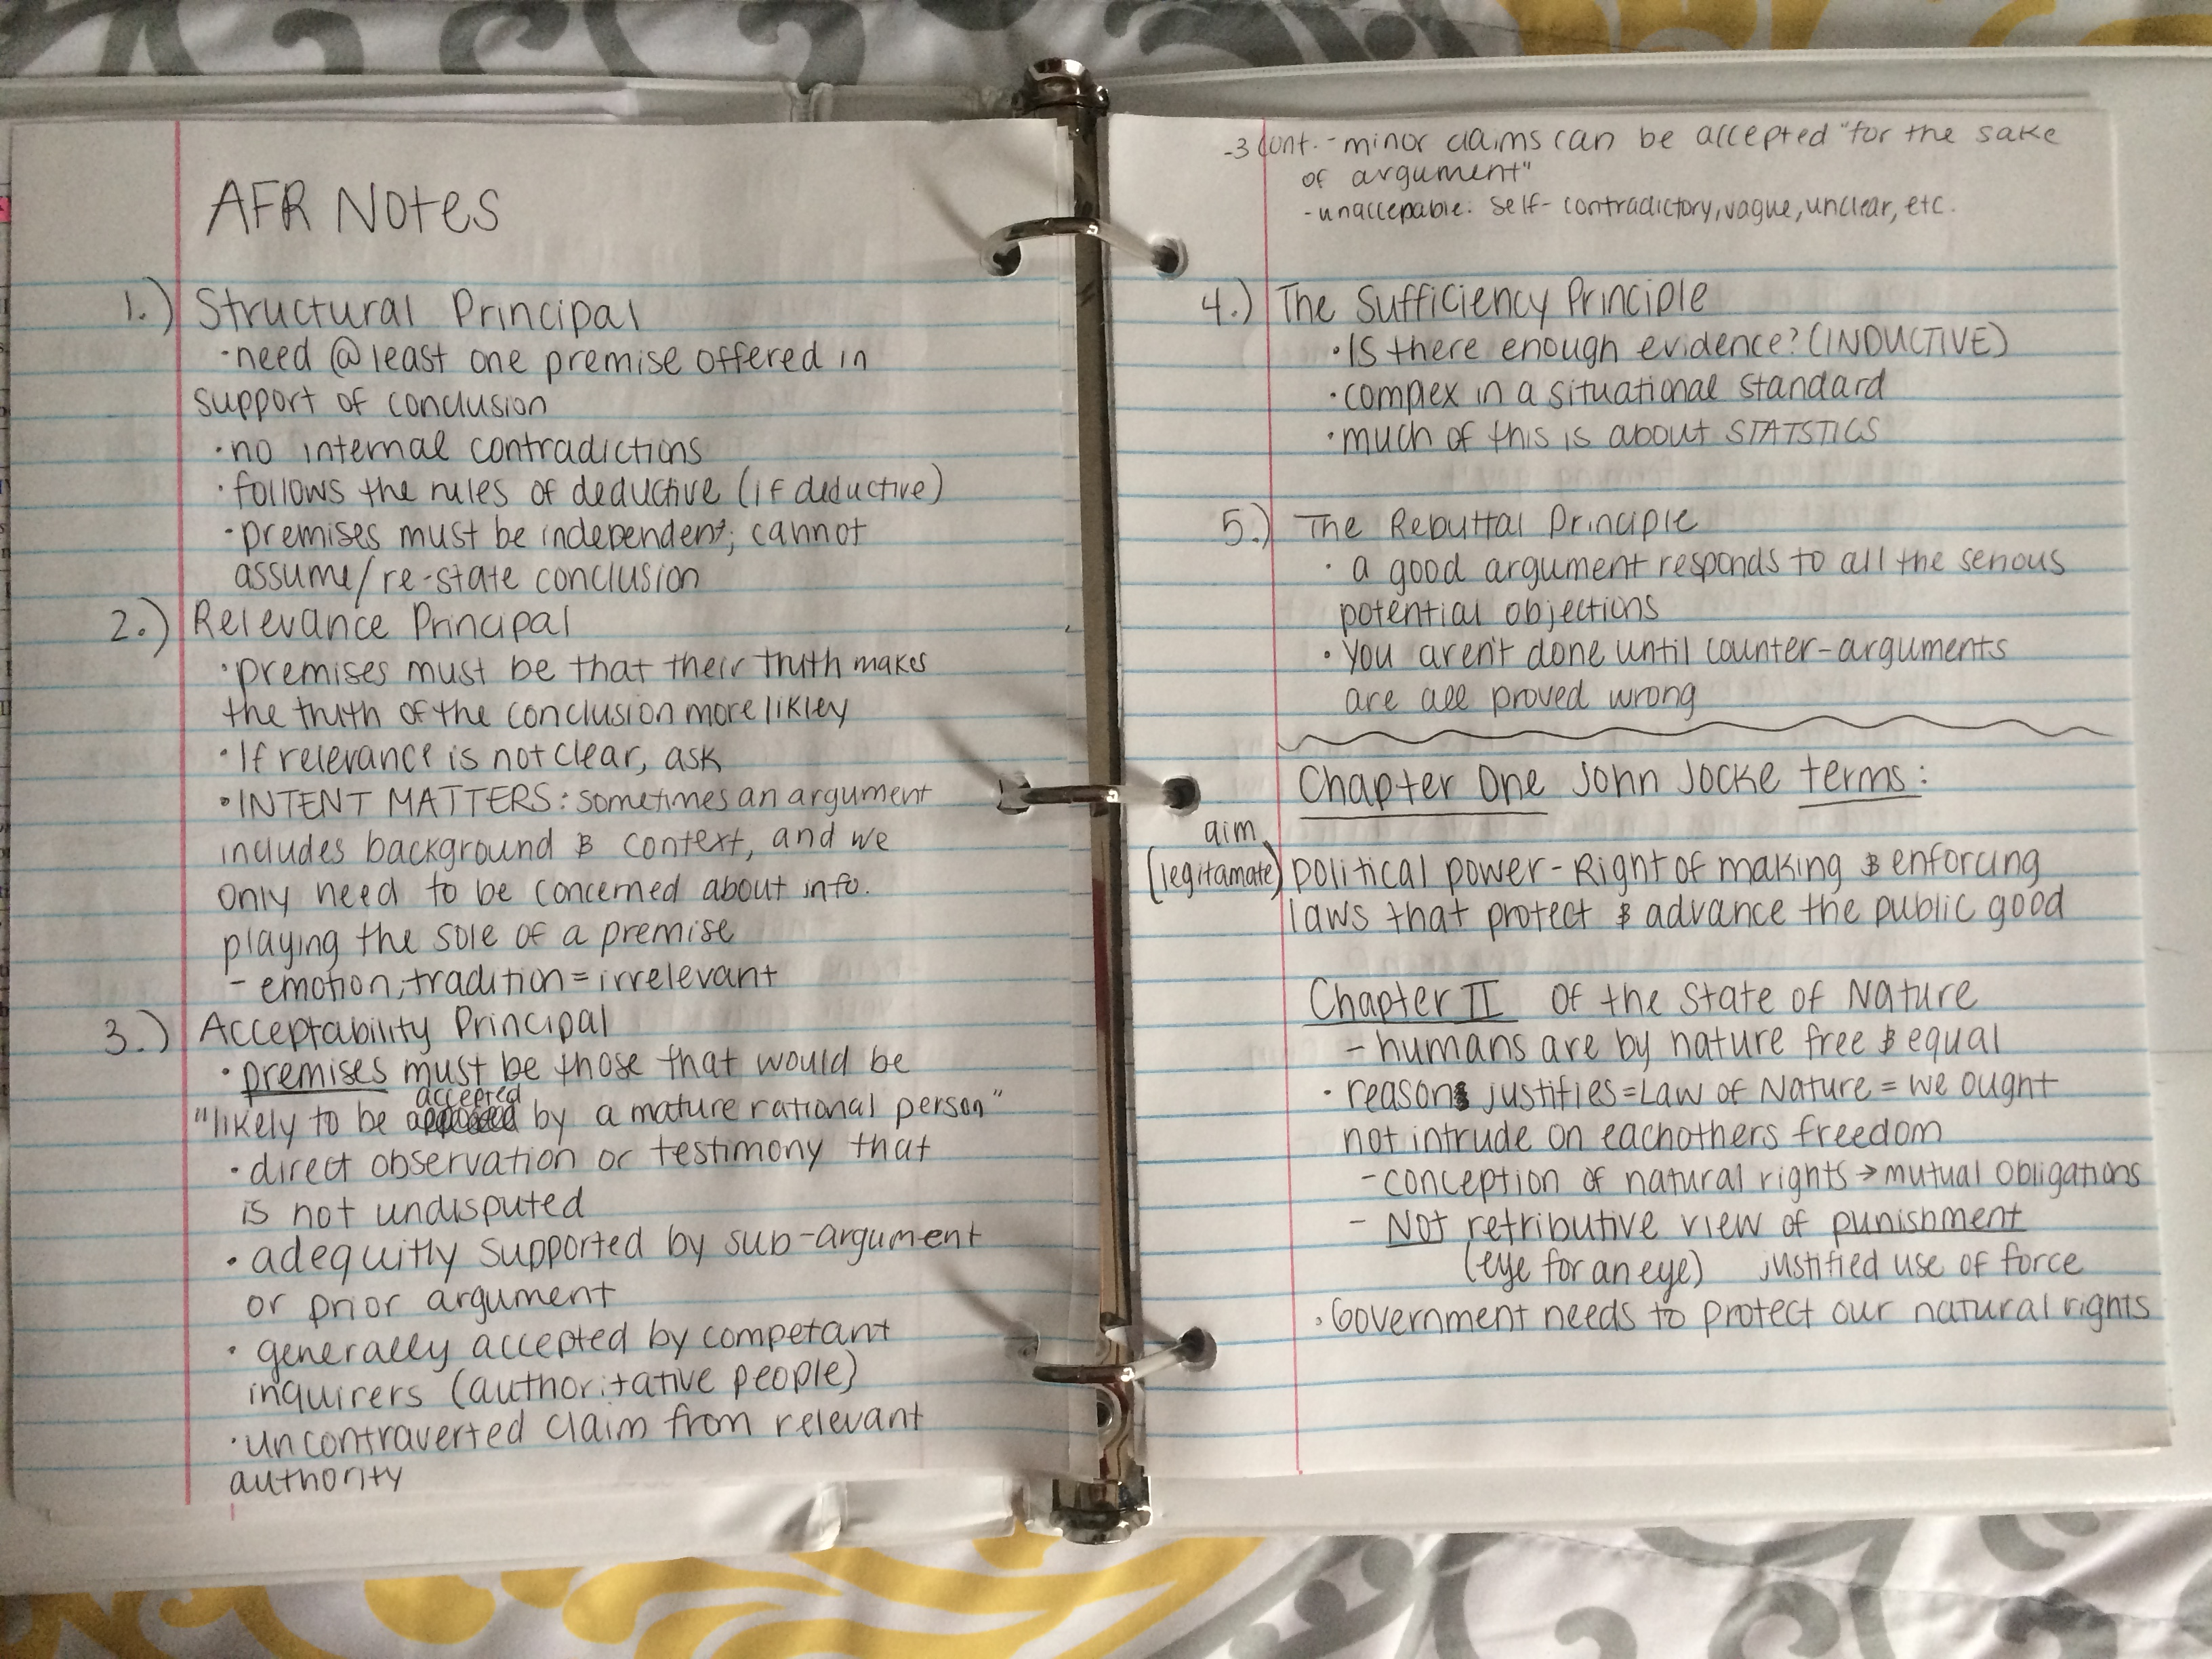 AFR Notes
1.) Structural Principal
·need @ least one premise offered in
support of conclusion
·no internal contradictions
·follows the rules of deductive (if deductive)
·premises must be independent; cannot
assume/re-state conclusion
2.) Relevance Principal
·premises must be that their truth makes
the truth of the conclusion more likley
·If relevance is not clear, ask
·INTENT MATTERS: sometimes an argument
includes background & context, and we
only need to be concerned about info.
playing the sole of a premise
- emotion, tradition = irrelevant
3.) Acceptability Principal
·premises must be those that would be
accepted
"likely to be by a mature rational person"
·direct observation or testimony that
is not undisputed
·adequitly supported by sub-argument
or prior argument
·generally accepted by competant
inquirers (authoritative people)
·uncontraverted claim from relevant
authority
-3 cont. - minor claims can be accepted "for the sake
of argument"
-unaccepable: self-contradictory, vague, unclear, etc.
4.) The Sufficiency Principle
·Is there enough evidence? (INDUCTIVE)
·compex in a situational standard
·much of this is about STATSTICS
5.) The Rebuttal Principle
·a good argument responds to all the serious
potential objections
·You aren't done until counter-arguments
are all proved wrong
Chapter One John Jocke terms:
aim
(legitamate) political power - Right of making & enforcing
laws that protect & advance the public good
Chapter II Of the State of Nature
- humans are by nature free & equal
·reason justifies = Law of Nature = we ought
not intrude on eachothers freedom
- conception of natural rights → mutual obligations
- Not retributive view of punishment
(eye for an eye) justified use of force
·Government needs to protect our natural rights